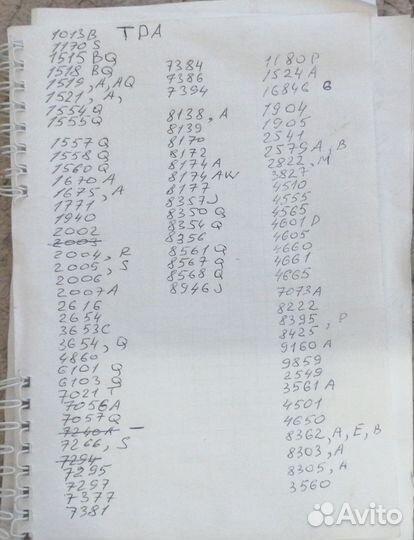 TDA
1013B
1170S
1515BQ
1518BQ
1519, A, AQ
1521, A,
1554Q
1555Q
1557Q
1558Q
1560Q
1670A
1675, A
1771
1940
2002
2003
2004, R
2005, S
2006
2007A
2616
2654
3653C
3654, Q
4860
6101 Q
6103 Q
7021 T
7056A
7057Q
7240A
7266, S
7294
7295
7297
7377
7381
7384
7386
7394
8138, A
8139
8170
8172
8174A
8174AW
8177
8357J
8350Q
8354Q
8356
8561Q
8567Q
8568Q
8946J
1180P
1524A
16846 G
1904
1905
2541
2579A, B
2822, M
3827
4510
4555
4565
4601D
4605
4660
4661
4665
7073A
8222
8395, P
8425,
9160A
9859
2549
3561A
4501
4650
8362, A, E, B
8303, A
8305, A
3560
Avito